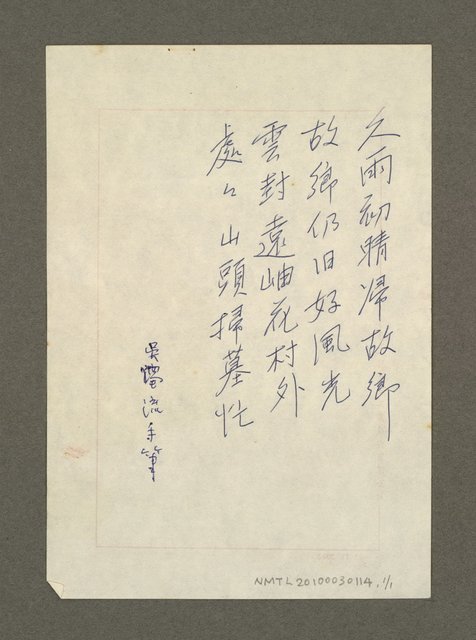 久雨初晴帰故鄉
故鄉仍旧好風光
雲封遠岫花村外
處々山頭掃墓忙
吳濁流手筆
NMTL20100030114.1/1